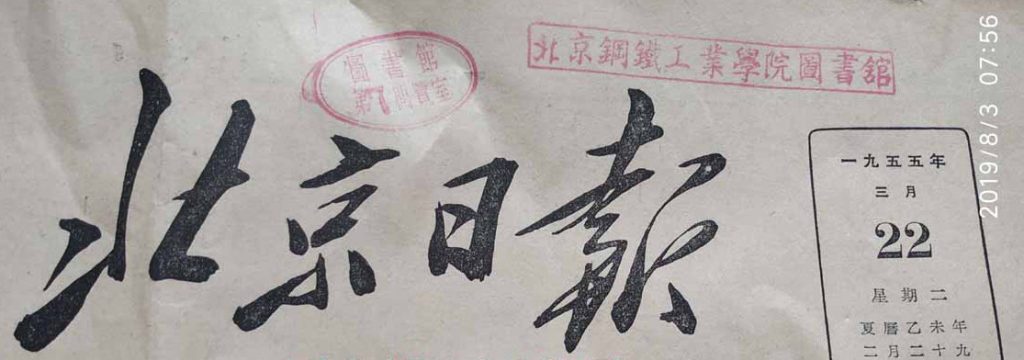 北京日報
圖書館
北京鋼鐵工業學院圖書舘
一九五五年
三月
22
星期二
夏曆乙未年
二月二十九
2019/8/3 07:56